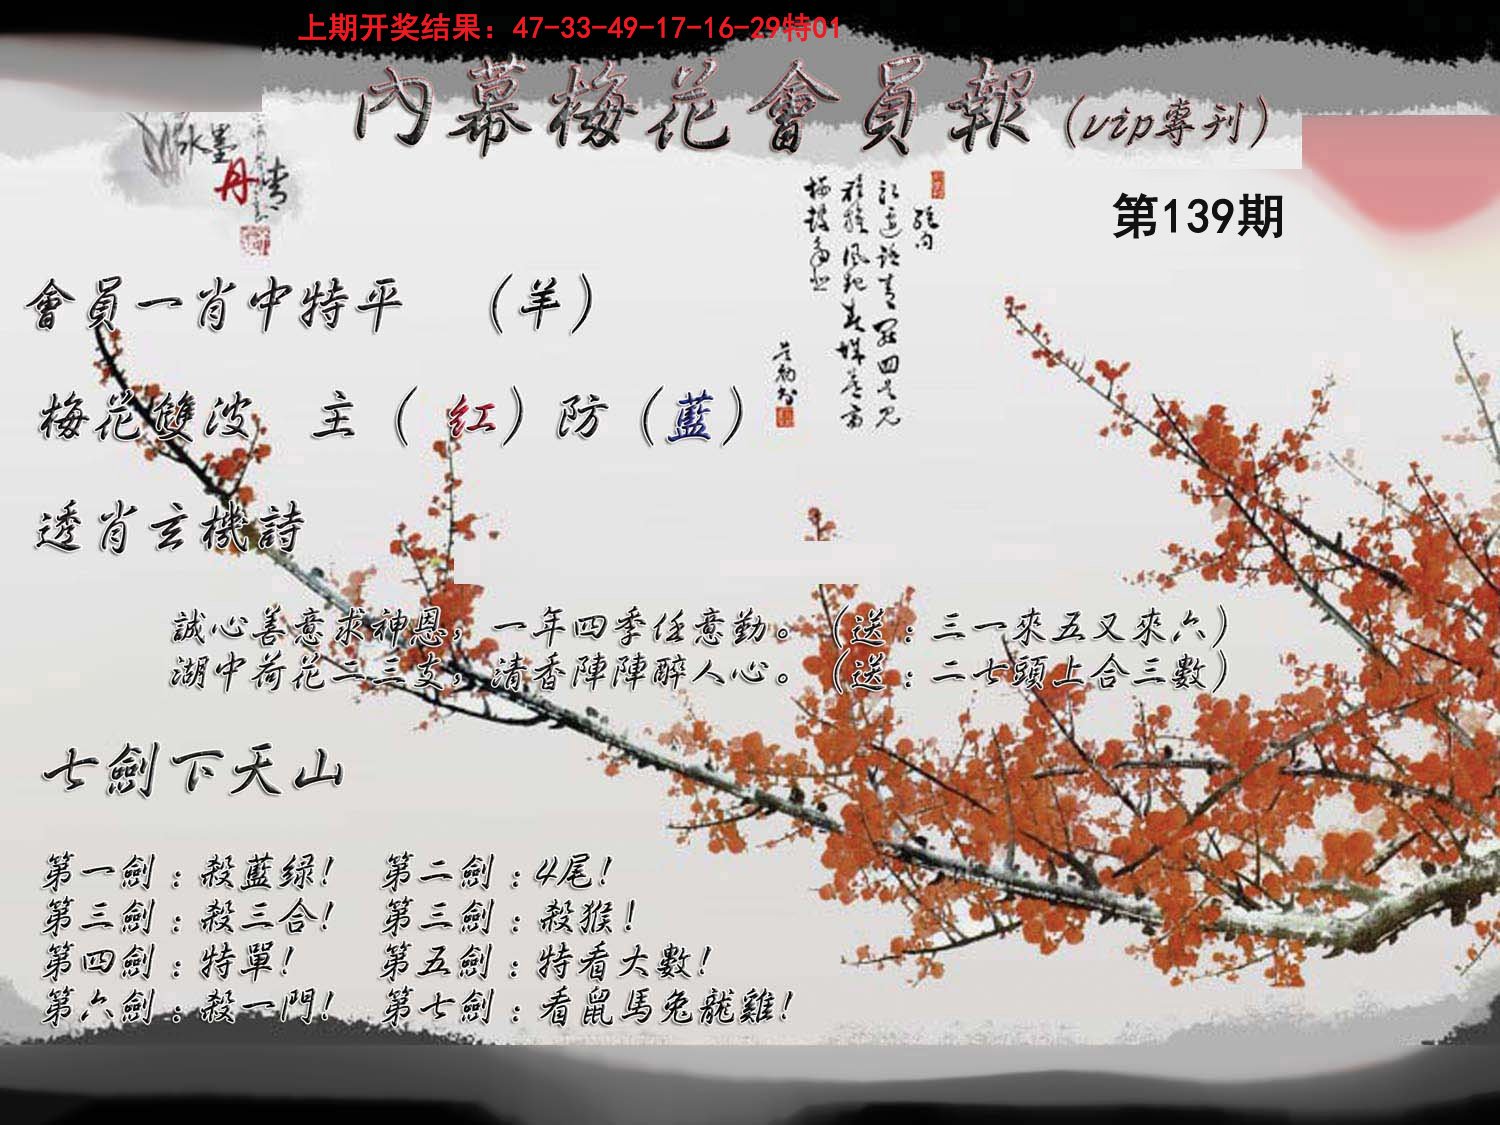 上期开奖结果：47-33-49-17-16-29特01
內幕梅花會員報（vip專刊）
水墨
丹青
第139期
會員一肖中特平　（羊）
梅花雙波　主（紅）防（藍）
透肖玄機詩
誠心善意求神恩，一年四季任意勤。（送：三一來五又來六）
湖中荷花二三支，清香陣陣醉人心。（送：二七頭上合三數）
七劍下天山
第一劍：殺藍绿！　第二劍：4尾！
第三劍：殺三合！　第三劍：殺猴！
第四劍：特單！　第五劍：特看大數！
第六劍：殺一門！　第七劍：看鼠馬兔龍雞！